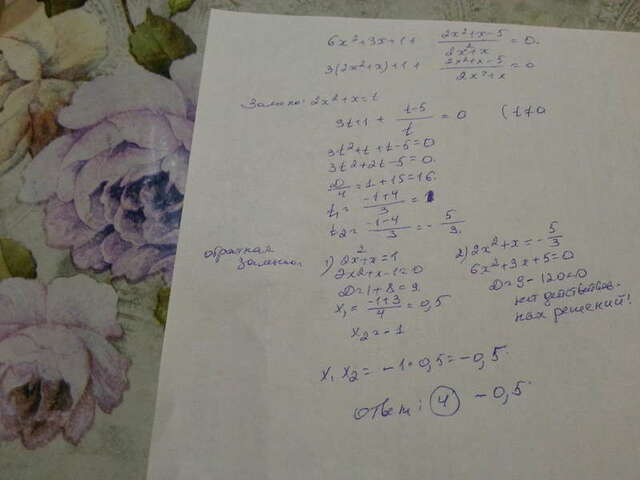 6x²+3x+1+ (2x²+x-5)/(2x²+x) = 0.
3(2x²+x)+1+ (2x²+x-5)/(2x²+x) = 0
Замена: 2x²+x=t
3t+1+ (t-5)/t = 0 (t≠0
3t²+t+t-5=0
3t²+2t-5=0.
D/4=1+15=16.
t₁= (-1+4)/3 = 1
t₂= (-1-4)/3 = -5/3.
обратная
замена.
1) 2x²+x=1
2x²+x-1=0
D=1+8=9.
x₁= (-1+3)/4 = 0,5
x₂=-1
2) 2x²+x=-5/3
6x²+3x+5=0
D=9-120<0
нет действитель-
ных решений!
x₁x₂=-1·0,5=-0,5.
ответ: 4 -0,5.